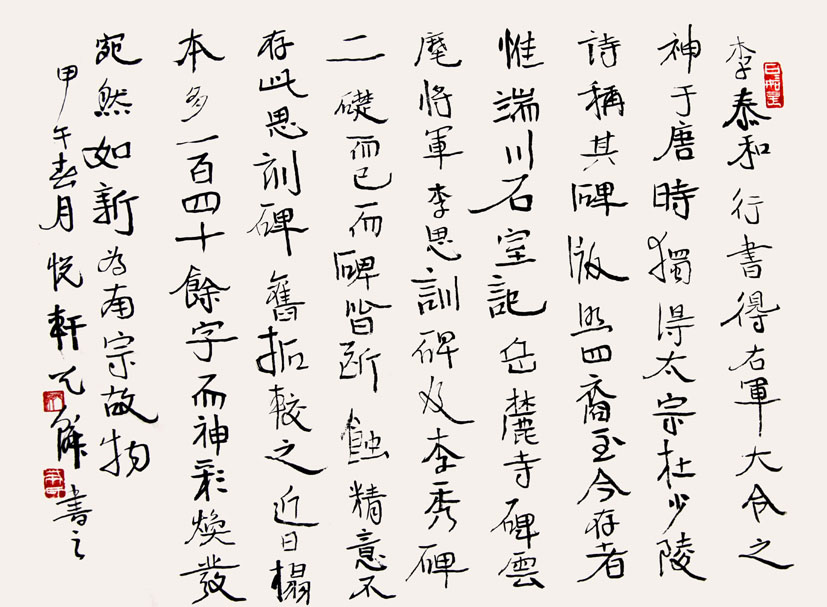 李泰和行書得右軍大令之
神于唐時獨得太宗杜少陵
詩稱其碑版照四裔至今存者
惟端川石室記岳麓寺碑雲
麾將軍李思訓碑及李秀碑
二礎而已而碑皆斷蝕精意不
存此思訓碑舊拓較之近日榻
本多一百四十餘字而神彩煥發
宛然如新為南宗故物
甲午春月悅軒兄解書之